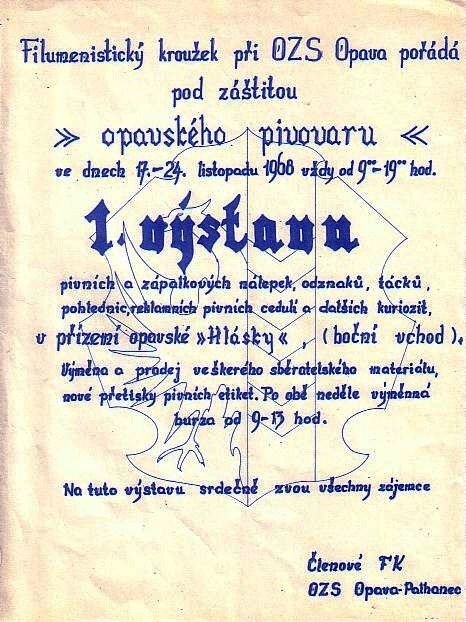 Filumenistický kroužek při OZS Opava pořádá
pod záštitou
» opavského pivovaru «
ve dnech 17.-24. listopadu 1968 vždy od 9⁰⁰-19⁰⁰ hod.
1. výstavu
pivních a zápalkových nálepek, odznaků, tácků,
pohlednic, reklamních pivních cedulí a dalších kuriozit,
v přízemí opavské »Hlásky«, (boční vchod).
Výměna a prodej veškerého sběratelského materiátu,
nové přetisky pivních etiket. Po obě neděle výměnná
burza od 9-13 hod.
Na tuto výstavu srdečně zvou všechny zájemce
Členové FK
OZS Opava-Pathanec